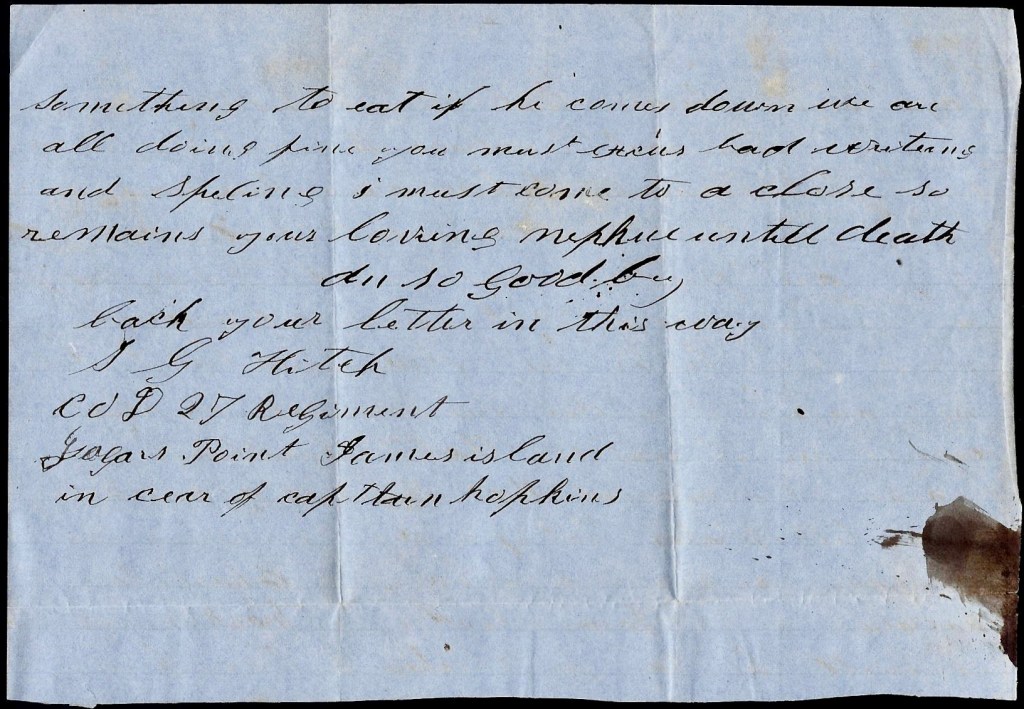 something to eat if he comes down we are
all doing fine you must excus bad writing
and speling i must come to a close so
remains your loving nephue untill death
so good by
back your letter in this way
S G Hitch
CO D 27 Regiment
Point James island
in cear of capttan hopkins